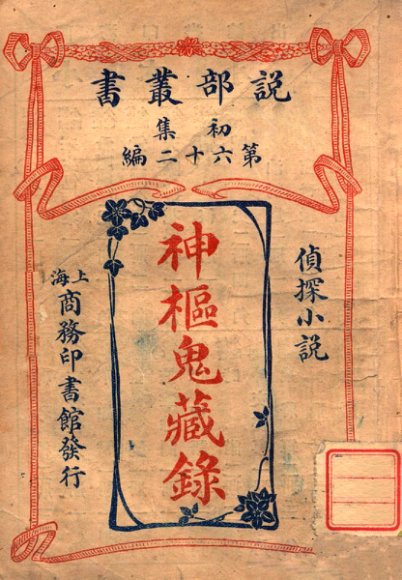 説部叢書
初集
第六十二編
偵探小説
神樞鬼藏錄
上海
商務印書館發行